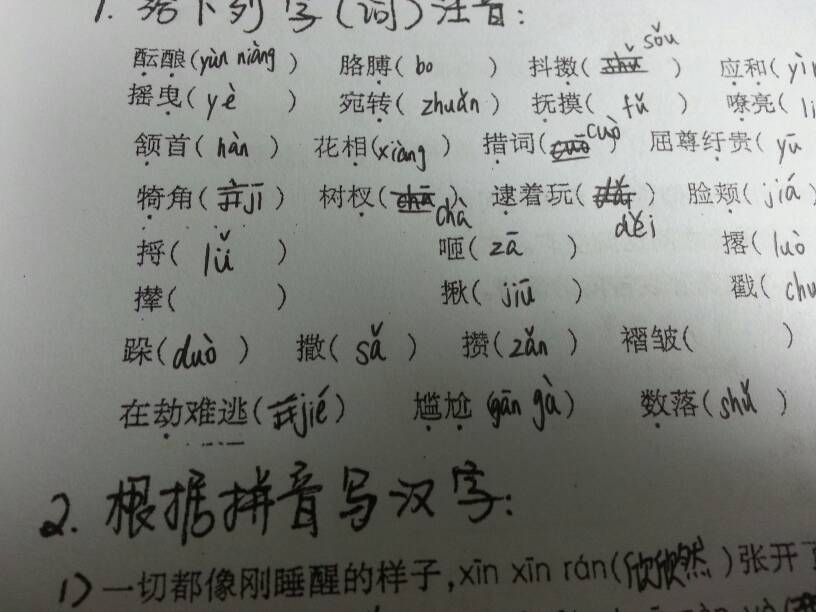 1. 给下列字(词)注音:
酝酿(yùn niàng) 胳膊(bo) 抖擞(sǒu) 应和(
摇曳(yè) 宛转(zhuǎn) 抚摸(fǔ) 嘹亮(
颔首(hàn) 花相(xiàng) 措词(cuò) 屈尊纡贵(yū
犄角(jī) 树杈(chà) 逮着玩(děi) 脸颊(jiá)
捋(lǚ) 咂(zā) 撂(luò
撵( ) 揪(jiū) 戳(
跺(duò) 撒(sǎ) 攒(zǎn) 褶皱( )
在劫难逃(jié) 尴尬(gān gà) 数落(shǔ)
2. 根据拼音写汉字:
1)一切都像刚睡醒的样子,xīn xīn rán(欣欣然)张开了